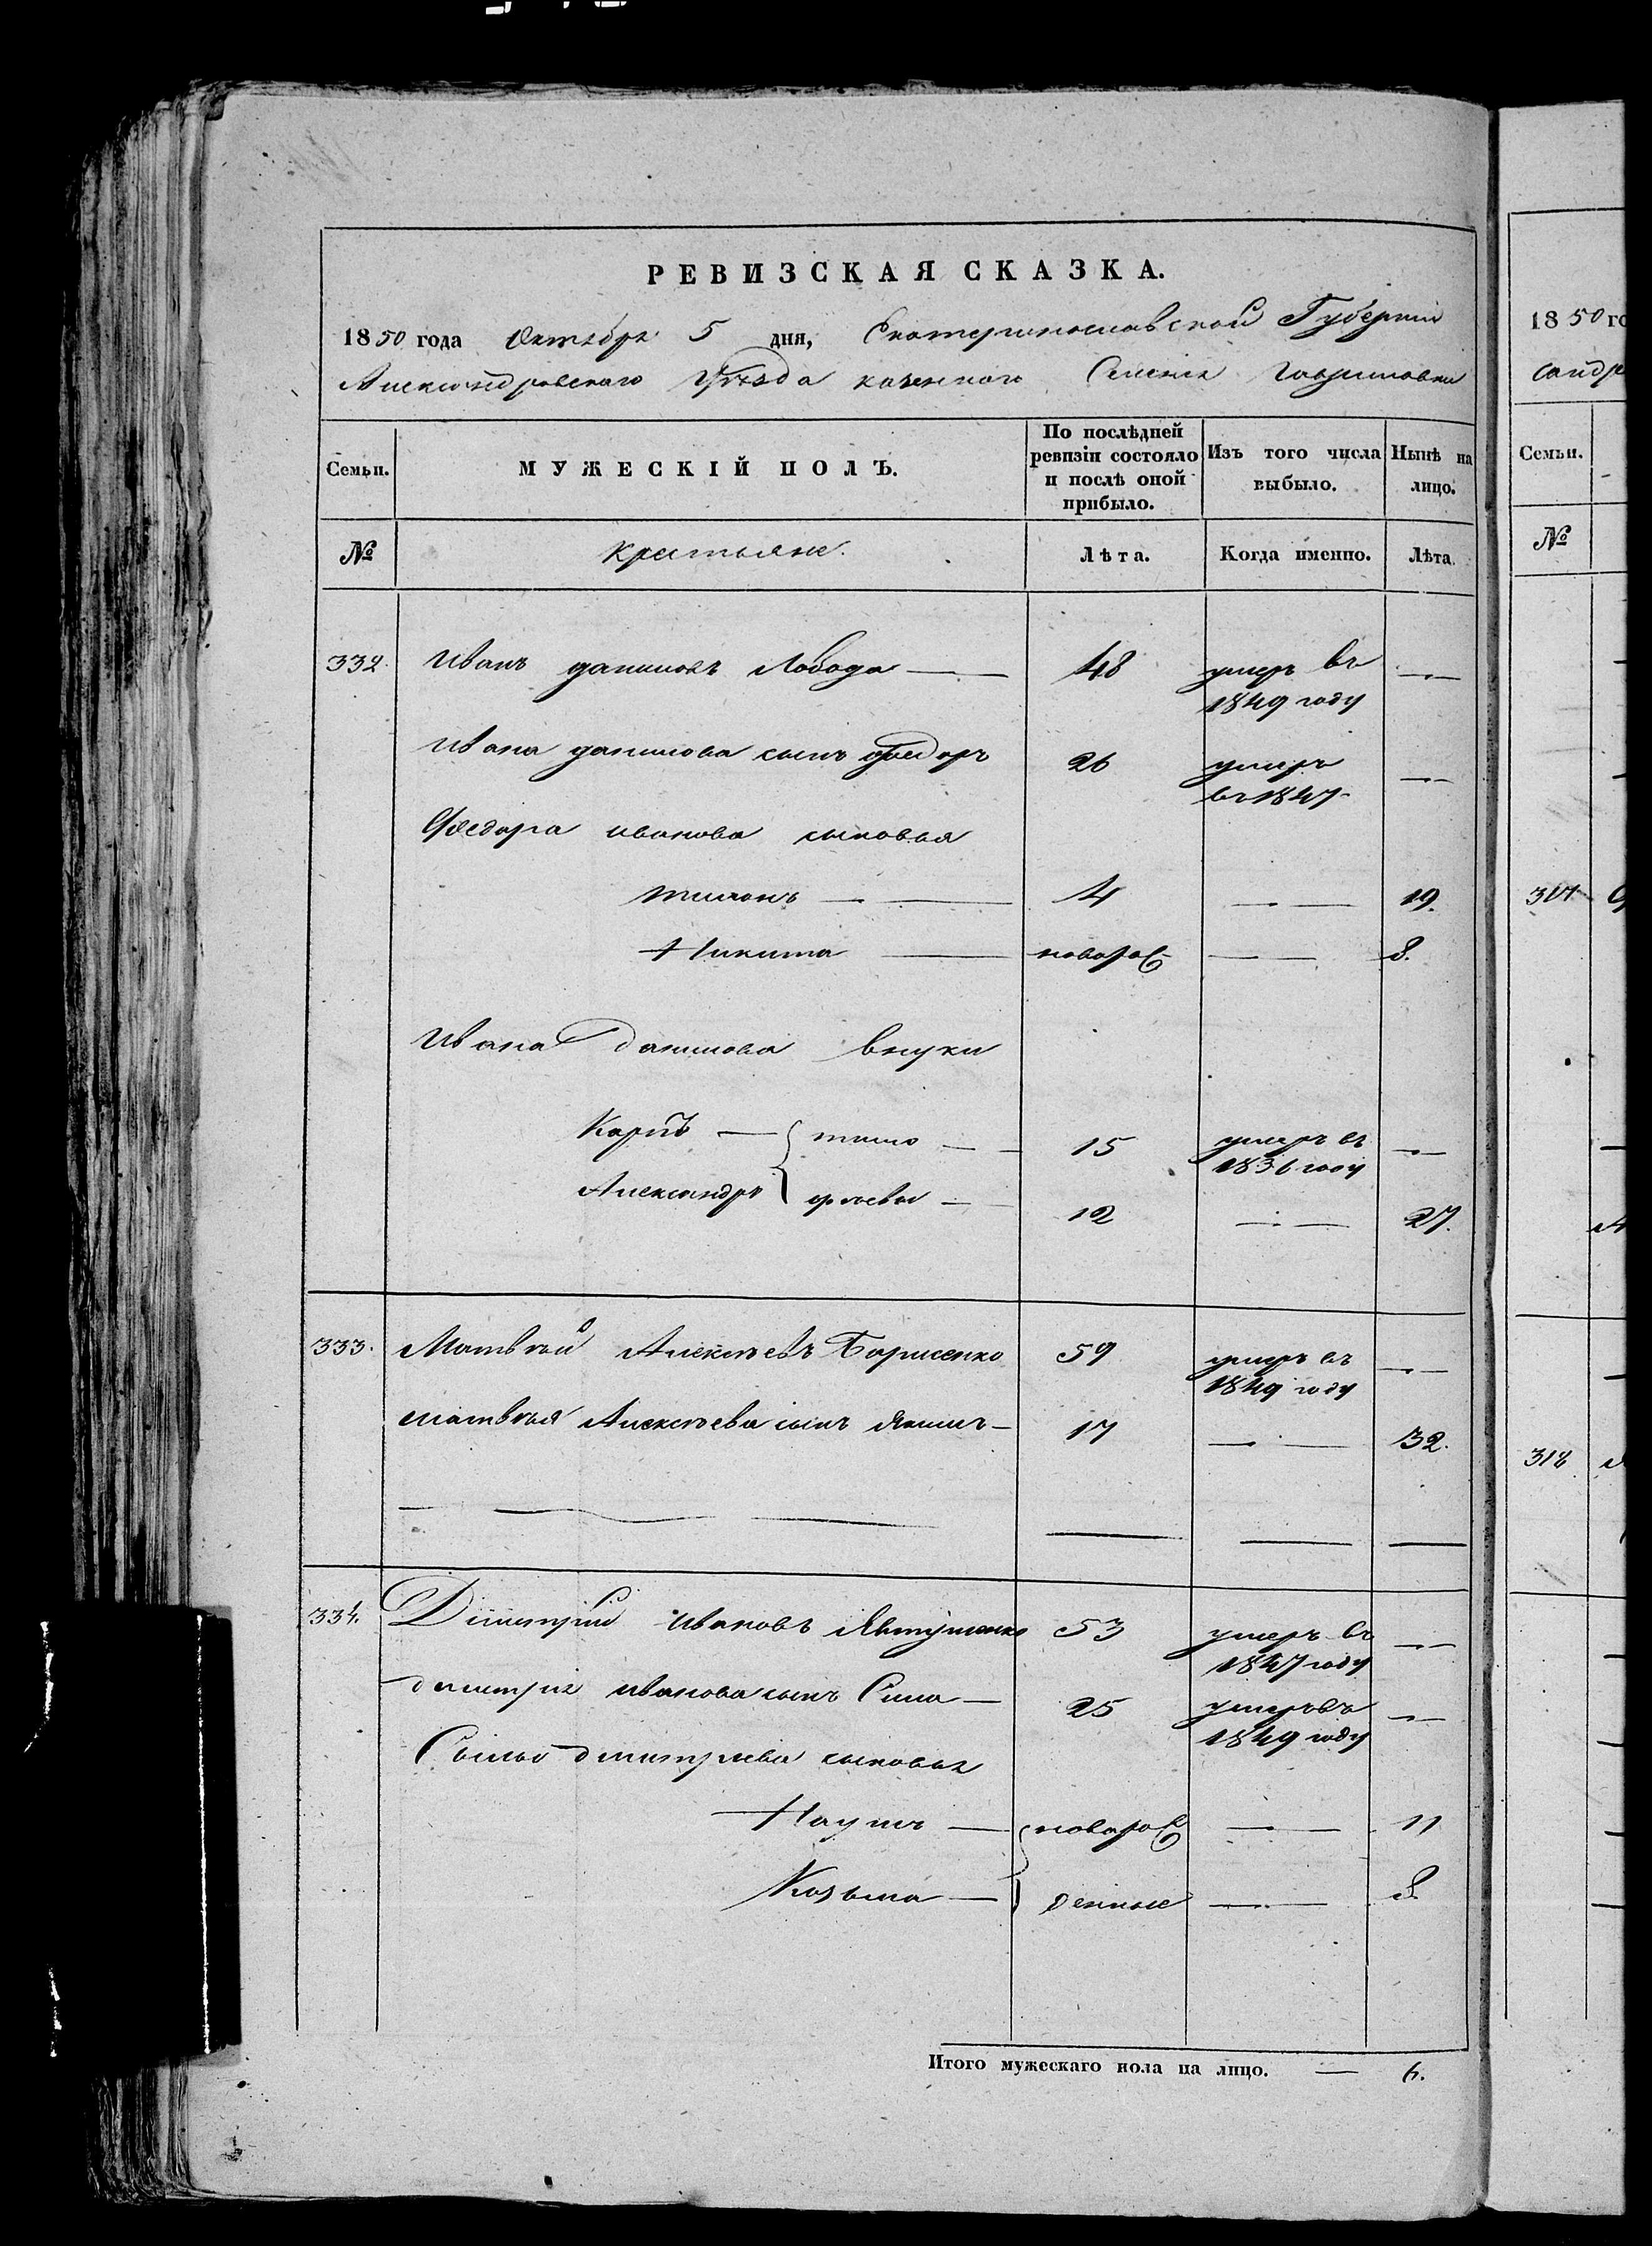 РЕВИЗСКАЯ СКАЗКА.
1850 года Октября 5 дня, Екатеринославской Губернии
Александровского Уѣзда казенного Селенія Гавриловки
Семьи. МУЖЕСКІЙ ПОЛЪ. По послѣдней ревизіи состояло и послѣ оной прибыло. Изъ того числа выбыло. Нынѣ на лицо.
№ крестьяне. Лѣта. Когда именно. Лѣта.
332. Иванъ даниловъ Лобода — 48 умеръ въ —
1849 году
Ивана данилова сынъ Федоръ 26 умеръ —
въ 1847
Федора иванова сыновья
тихонъ — 4 — 19.
Никита — новорож — 8.
Ивана данилова внуки
Карпъ — { тимо — 15 умеръ въ —
1836 году
Александръ феевы — 12 — 27.
333. Матвѣй Алексѣевъ Борисенко 59 умеръ въ —
1849 году
матвѣя Алексѣева сынъ Якимъ — 17 — 32.
334. Дмитрій ивановъ Явтушенко 53 умеръ въ —
1847 году
дмитрія иванова сынъ Сила — 25 умеръ въ —
1849 году
Силы дмитріева сыновья
Наумъ — новорож — 11
Козьма — денные — 8.
Итого мужескаго пола на лицо. — 6.
1850 го
Семьи.
№
317
318